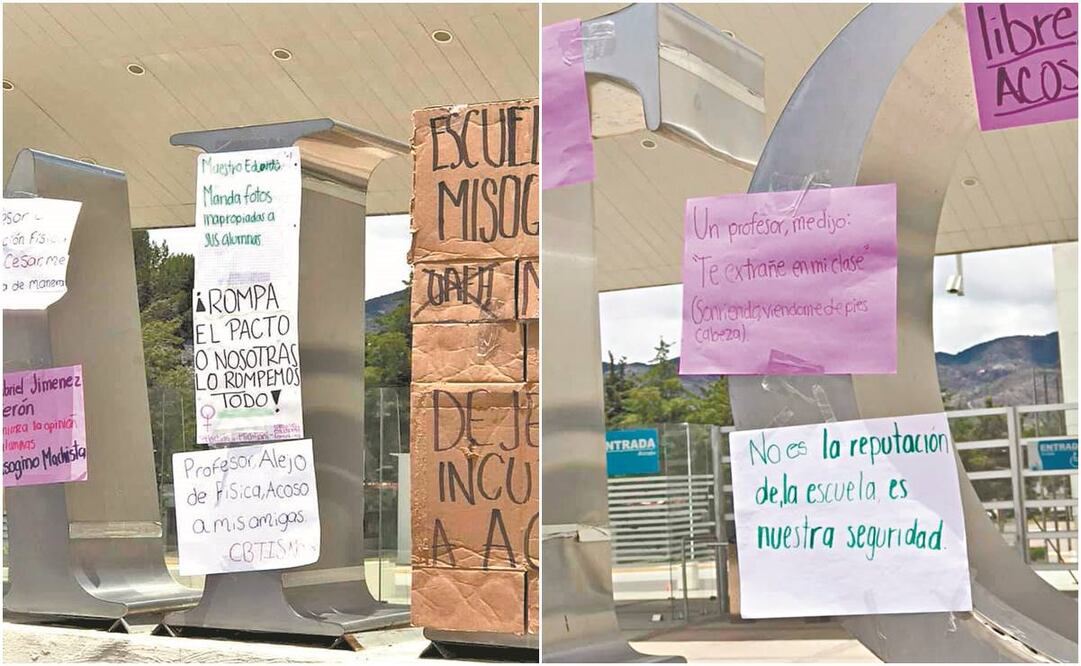 ción Física
Cesar me
a de manera
briel Jimenez
erón
la opinión
Misógino Machista
Maestro Eduardo
Manda fotos
inapropiadas a
sus alumnas
¡ROMPA
EL PACTO
O NOSOTRAS
LO ROMPEMOS
TODO!
Profesor, Alejo
de Fisica, Acoso
a mis amigas.
CBTIS
ESCUEL
MISOG
DEJE
INCU
A AC
libre
ACOS
Un profesor, me dijo:
"Te extrañe en mi clase"
(Sonriendo, viendome de pies
cabeza).
No es la reputación
de la escuela, es
nuestra seguridad.
ENTRADA
ENTRADA